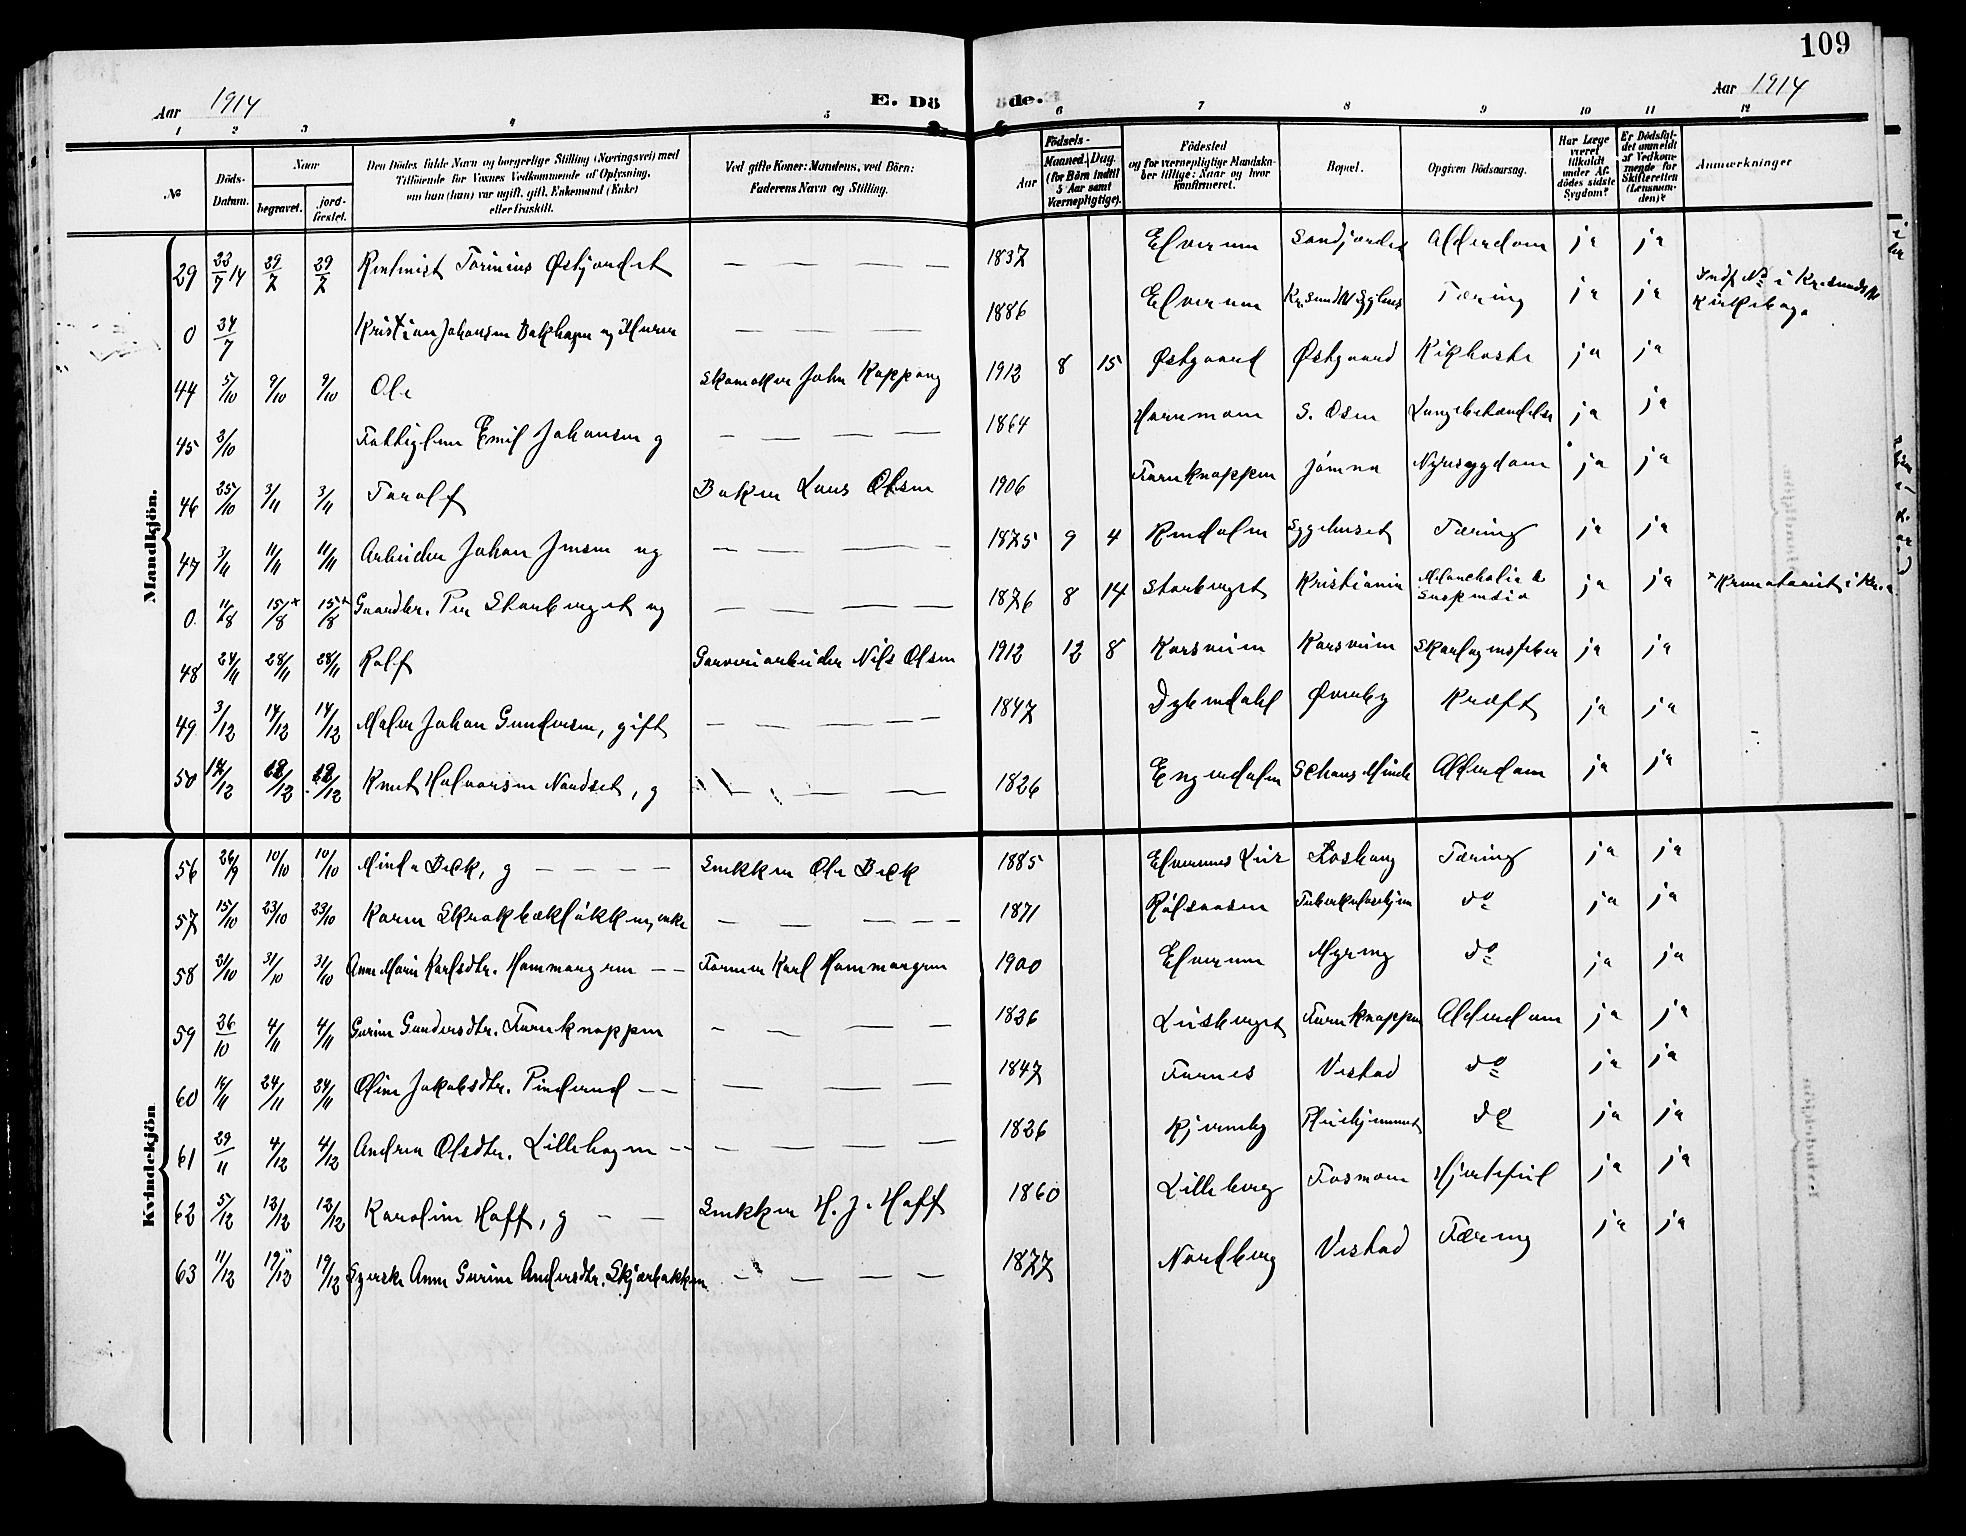 109
Aar 1914
E. Dö
de.
Aar 1914
1 2 3 4 5 6 7 8 9 10 11 12
No
Döds-Datum.
Naar
begravet.
jord-festet.
Den Dödes fulde Navn og borgerlige Stilling (Næringsvei) med
Tilföiende for Voxnes Vedkommende af Oplysning,
om han (hun) var ugift, gift, Enkemand (Enke)
eller fraskilt.
Ved gifte Koner: Mandens, ved Börn:
Faderens Navn og Stilling.
Födsels-
Aar
Maaned. Dag.
(for Börn indtil
5 Aar samt
Værnepligtige).
Födested
og for værnepligtige Mandskaber tillige: Naar og hvor
konfirmeret.
Bopæl.
Opgiven Dödsaarsag.
Har Læge været tilkaldt under Afdödes sidste Sygdom?
Er Dödsfaldet anmeldt af Vedkommende for Skifteretten (Lensmanden)?
Anmærkninger
Mandkjön.
29 23/7 14 29/7 29/7 Rentenist Torinius Østjordet — — — — 1837 Elverum Sandjordet Alderdom ja ja
0 24/7 Kristian Johansen Bakhagen ug Murer — — — 1886 Elverum Kr.sund N Sygehus Tæring ja ja Indf. No i Kr.sunds N Kirkebog.
44 5/10 9/10 9/10 Ole Skomaker John Koppang 1912 8 15 Østgaard Østgaard Kikhoste ja ja
45 3/10 Fattiglem Emil Johansen g — — — — 1864 S. Osen ja ja
46 25/10 3/11 3/11 Toralf Baker Lars Olsen 1906 Tørnknappen Jömna Nyresygdom ja ja
47 3/11 11/11 11/11 Arbeider Johan Jensen ug — — — — 1875 9 4 Rendalen Sygehuset Tæring ja ja
0 11/8 15/8 × 15/8 × Gaardbr. Per Storberget ug — — — — 1876 8 14 Storberget Kristiania Melancholia & Suspensio ja ja × Krematoriet i Kr.a
48 24/11 28/11 28/11 Rolf Garveriarbeider Nils Olsen 1912 12 8 Karsveien Karsveien Skarlagensfeber ja ja
49 3/12 14/12 14/12 Maler Johan Gundersen, gift — — — — — 1847 Dybendahl Øverby Kræft ja ja
50 /12 /12 /12 Knut Halvorsen Nordset, g — — — 1826 Engerdalen Alderdom ja ja
Kvindekjön
56 26/9 10/10 10/10 Minda Bek, g — — — — Snekker Ole Bek 1885 Elverums Leir Tæring ja ja
57 15/10 23/10 23/10 Karen Skrokbækløkken, enke — — — — — 1871 Tuberkulosehjem do ja ja
58 21/10 31/10 31/10 Anne Marie Karlsdtr. Hammargren — — Former Karl Hammargren 1900 Elverum Myreng do ja ja
59 26/10 4/11 4/11 Gurine Gundersdtr. Tørnknappen — — — — 1836 Leirberget Tørnknappen Alderdom ja ja
60 16/11 24/11 24/11 Oline Jakobsdtr. Pinderud — — — — — 1847 Furnes Vestad do ja ja
61 29/11 4/12 4/12 Andrea Olsdtr. Lillehagen — — — — — — 1826 Kjernby Pleiehjemmet do ja ja
62 5/12 12/12 12/12 Karoline Hoff, g — — Snekker H. J. Hoff 1860 Lilleberg Tosmoen Hjertefeil ja ja
63 11/12 19/12 19/12 Syerske Anne Gurine Andersdtr. Skjærbakken — — — — 1877 Nordberg Vestad Tæring ja ja